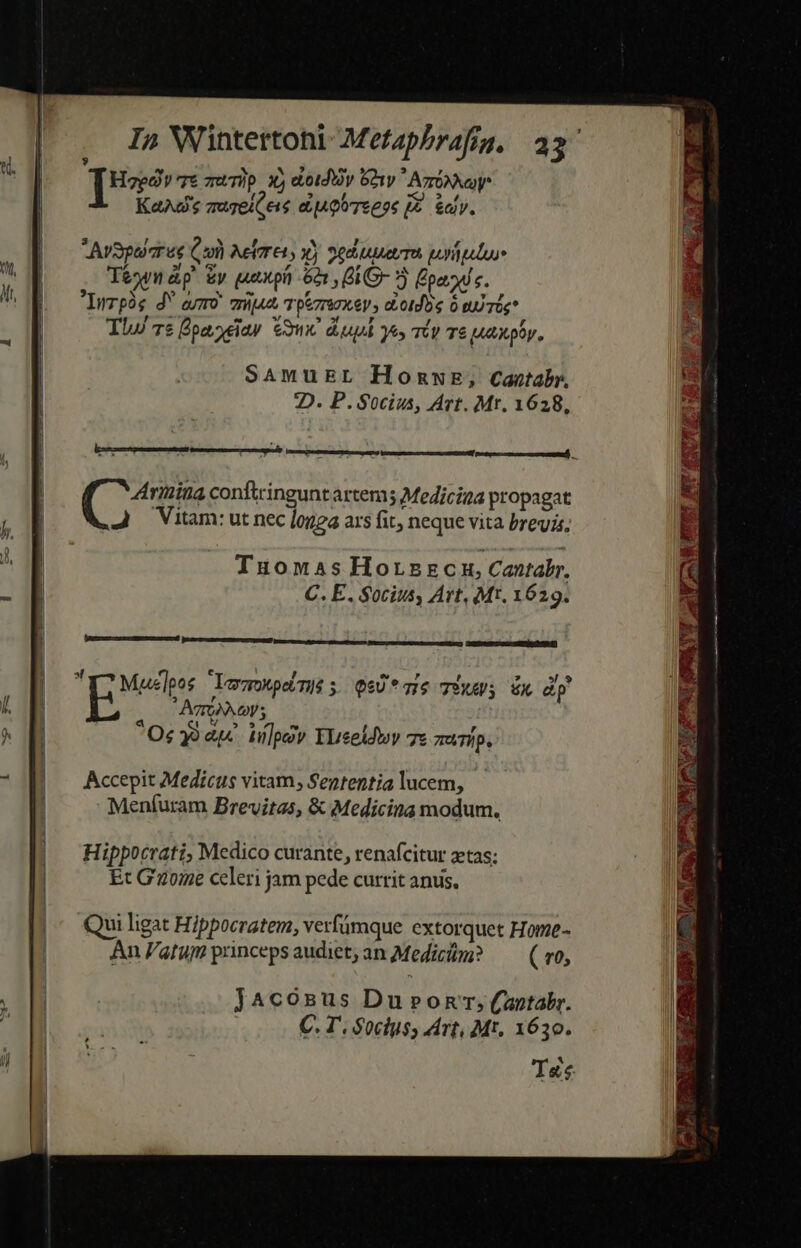 In VVintertoni Metaphrasin. 23
Ἰητρῶν τε πατὴρ καὶ ἀοιδῶν ὅστιν Ἀπόλλων·
Καλῶς παρείζεις ἀμφότερος μετ' ἐών.
Ἀνθρώπους ζωὴ λείπει, καὶ γράμματα μνήμην·
Τέχνη ἄρ' ἦν μακρὴ ὅτι, βίος δὲ βραχύς.
Ἰητρὸς δ' ἀπὸ πῆμα τρέπεσκεν, ἀοιδὸς ὁ αὐτός·
Τήν τε βραχεῖαν ἔθηκ' ἄμμι γε, τόν τε μακρόν.
SAMUEL HORNE, Cantabr.
D. P. Socius, Art. Mr. 1628,
CArmina conſtringunt artem; Medicina propagat
Vitam: ut nec longa ars ſit, neque vita brevis.
THOMAS HOLBECH, Cantabr.
C. E. Socius, Art, Mr. 1629.
ἜΜμετρος Ἱπποκράτης; φεῦ· τίς τέκεν; ἐκ ἄρ'
Ἀπόλλων;
Ὃς γὰρ ἅμ' ἰητρῶν Πιερίδων τε πατήρ.
Accepit Medicus vitam, Sententia lucem,
Menſuram Brevitas, & Medicina modum.
Hippocrati, Medico curante, renaſcitur ætas:
Et Gnome celeri jam pede currit anus.
Qui ligat Hippocratem, verſúmque extorquet Home-
An Vatum princeps audiet, an Medicûm? (ro,
JACÓBUS DUPORT, Cantabr.
C. T. Socius, Art, Mr. 1630.
Τὰς